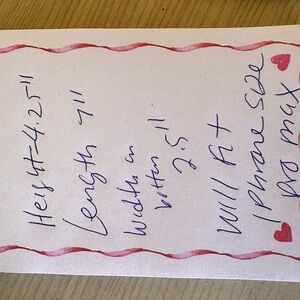 Height-4.25"
Length 7"
Width on
bottom
2.5"
Will fit
iPhone size
Pro max